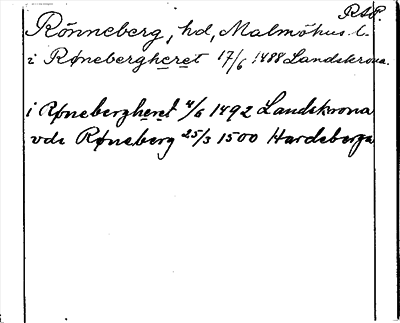 RAP.
Rönneberg, hd, Malmöhus l.
i Rønebergheret 17/6 1488 Landskrona.
i Rønebergheret 4/6 1492 Landskrona
vdi Røneberg 25/3 1500 Hardeberga